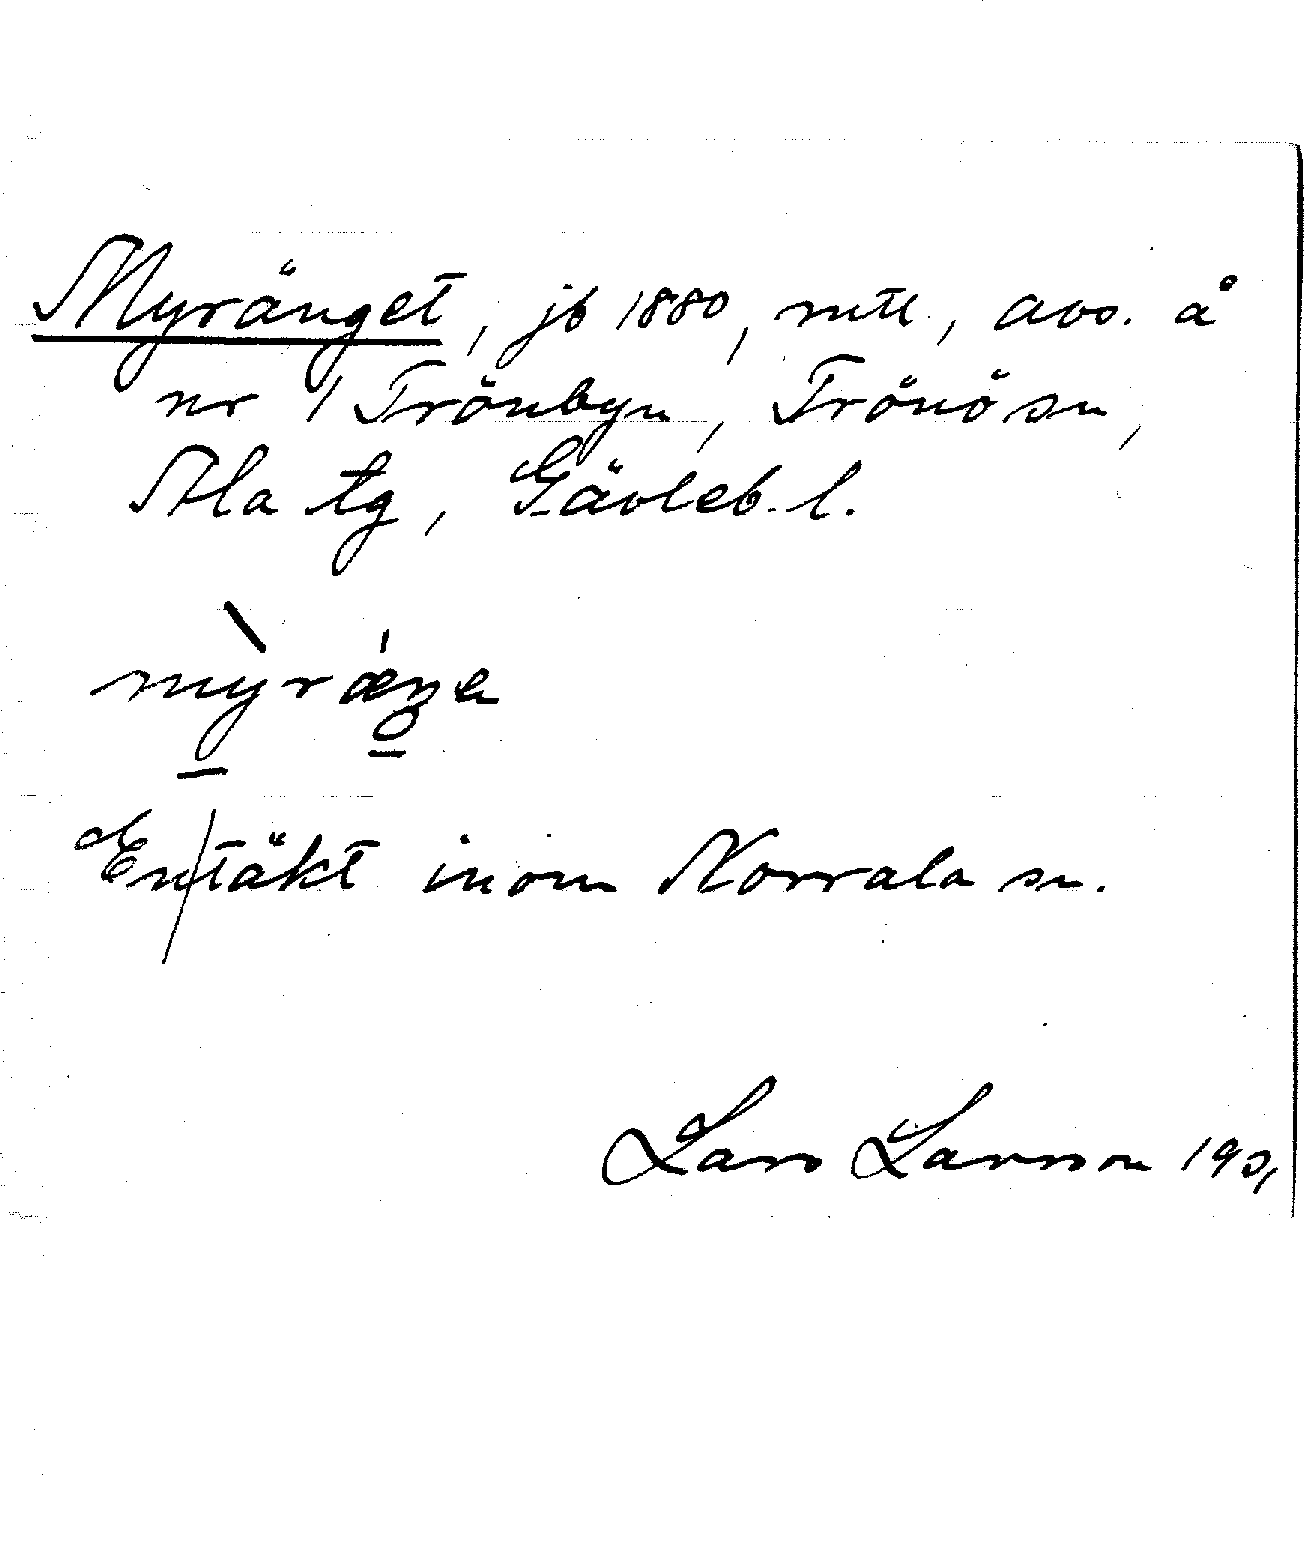 Myränget, jb 1880, mtl., avs. å
nr 1 Trönbyn, Trönö sn,
Ala tg, Gävleb. l.
mỳrǽŋa
En/täkt inom Norrala sn.
Lars Larsson